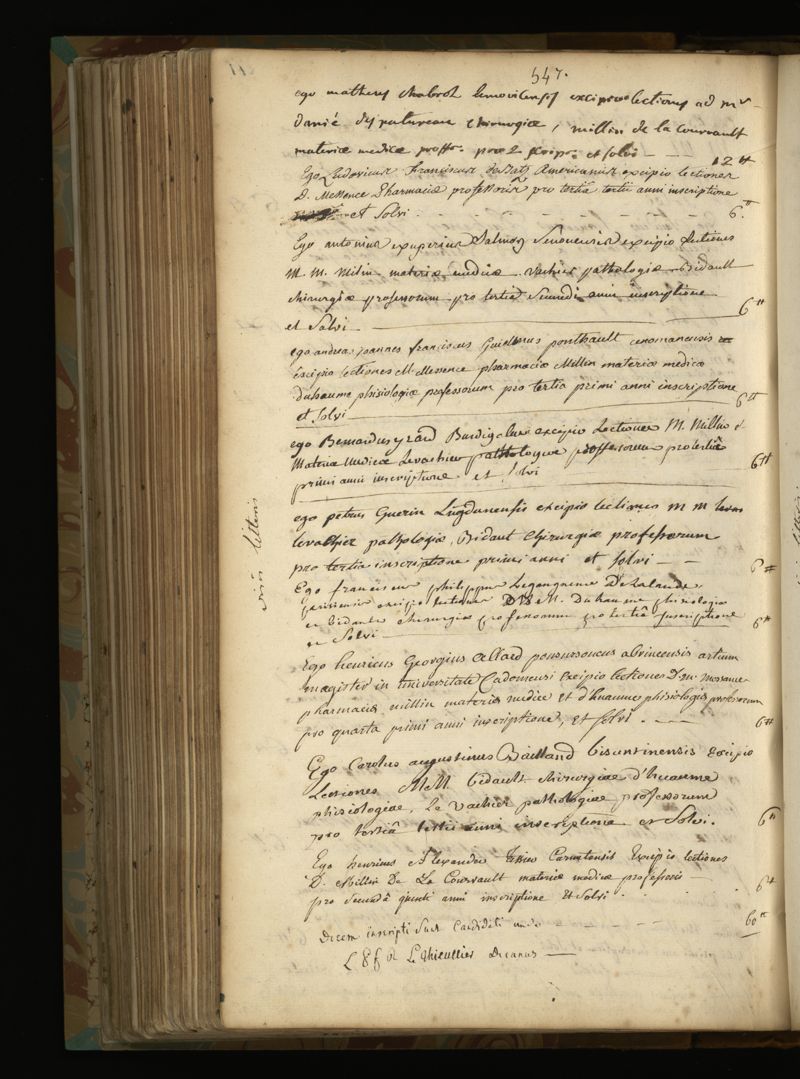 547.
ego matheus chabrol lemovicensis excipio lectiones ad mr
danié despatureau chirurgiæ, millin de la courvault
materiæ medicæ proff. pro 2 scrip. et solvi — 12 ₶
Ego Ludovicus Franciscus Americanus excipio lectiones
D. Messence Pharmaciæ professoris pro tertiâ tertii anni inscriptione
et Solvi. 6 ₶
Ego antonius exuperius Salmon Senonensis excipio lectiones
M. M. Milin materiæ medicæ. vachier pathologiæ Bidault
chirurgiæ professorum pro tertia Secundi anni inscriptione
et Solvi 6 ₶
ego andreas joannes franciscus Guielmus ponthault cenomanensis
excipio lectiones M. Messence pharmaciæ Millin materiæ medicæ
duhaume phisiologiæ professorum pro tertia primi anni inscriptione
et solvi 6 ₶
ego Bernardus yzard Burdigalus excipio Lectiones M. Millin d
Materiæ Medicæ Levachier pathologiæ proffesorum pro tertiâ
primi anni inscriptione. et solvi 6 ₶
ego petrus Guerin Lugdunensis excipio lectiones m m
levachier pathologiæ, Bidaut chirurgiæ professorum
pro tertia inscriptione primi anni et solvi — 6 ₶
vin lettens
Ego franciscus philippus Delalande
parisiensis excipio lectiones DD. et M. Duhaume phisiologiæ
et Bidault chirurgiæ professorum pro tertiâ inscriptione
et Solvi 6 ₶
Ego henricus Georgius Allard abrincensis artium
magister in universitate Cadomensi Excipio lectiones D. m. messence
pharmaciæ millin materiæ medicæ et d'huaume phisiologiæ professorum
pro quarta primi anni inscriptione, et solvi. — 6 ₶
Ego Carolus augustinus Bailland bisuntinensis Excipio
Lectiones MM. bidault chirurgiæ d'huaume
phisiologiæ, Le vachier pathologiæ professorum
pro tertiâ tertii anni inscriptione et Solvi. 6 ₶
Ego henricus Alexander Carnutensis Excipio lectiones
D. Millin De La Courvault materiæ medicæ professoris —
pro Secundâ quinti anni inscriptione Et Solvi. 6 ₶
Decem inscripti sunt Candidati 60 ₶
Le Thieullier Decanus —